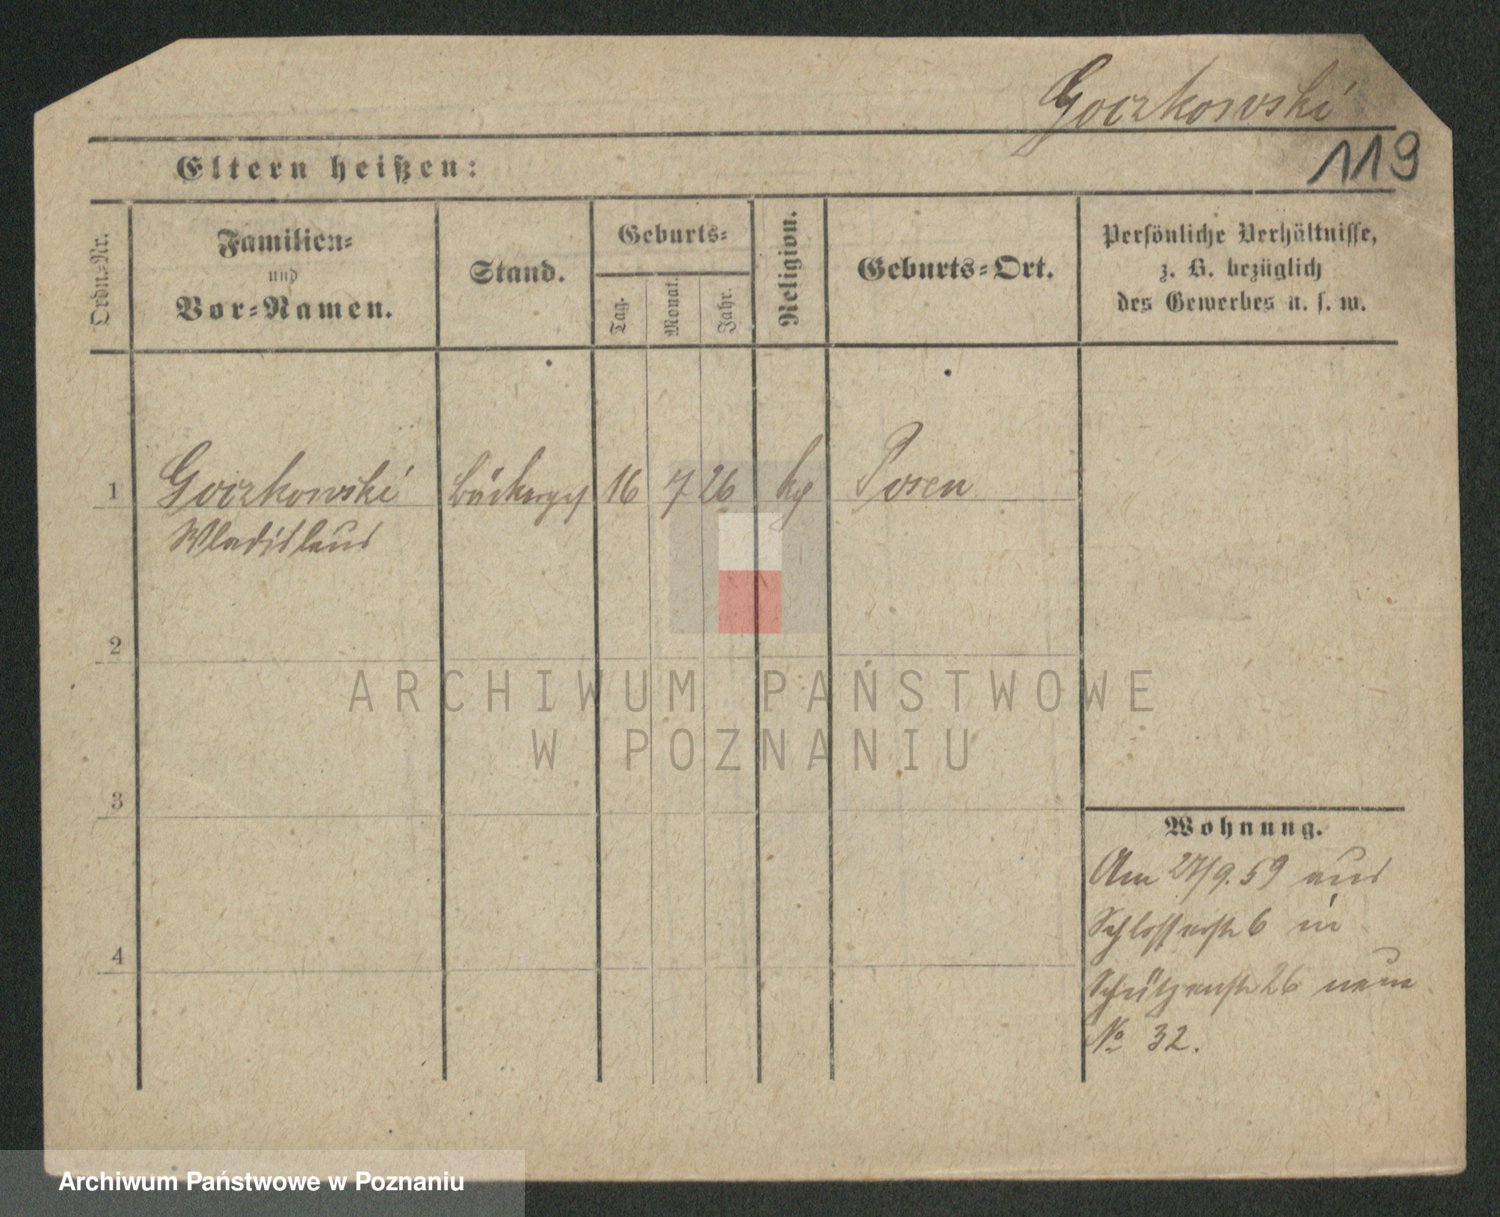 Goczkowski
119
Eltern heißen:
Ordn.-Nr.
Familien-
und
Vor-Namen.
Stand.
Geburts-
Tag.
Monat.
Jahr.
Religion.
Geburts-Ort.
Persönliche Verhältnisse,
z. B. bezüglich
des Gewerbes u. s. w.
1 Goczkowski Bäckerges 16 7 26 kg Posen
Wladislaus
2
3
4
Wohnung.
Am 27/9.59 aus
Schlosserstr 6 in
Schützenstr 26 neue
No 32.
ARCHIWUM PAŃSTWOWE
W POZNANIU
Archiwum Państwowe w Poznaniu